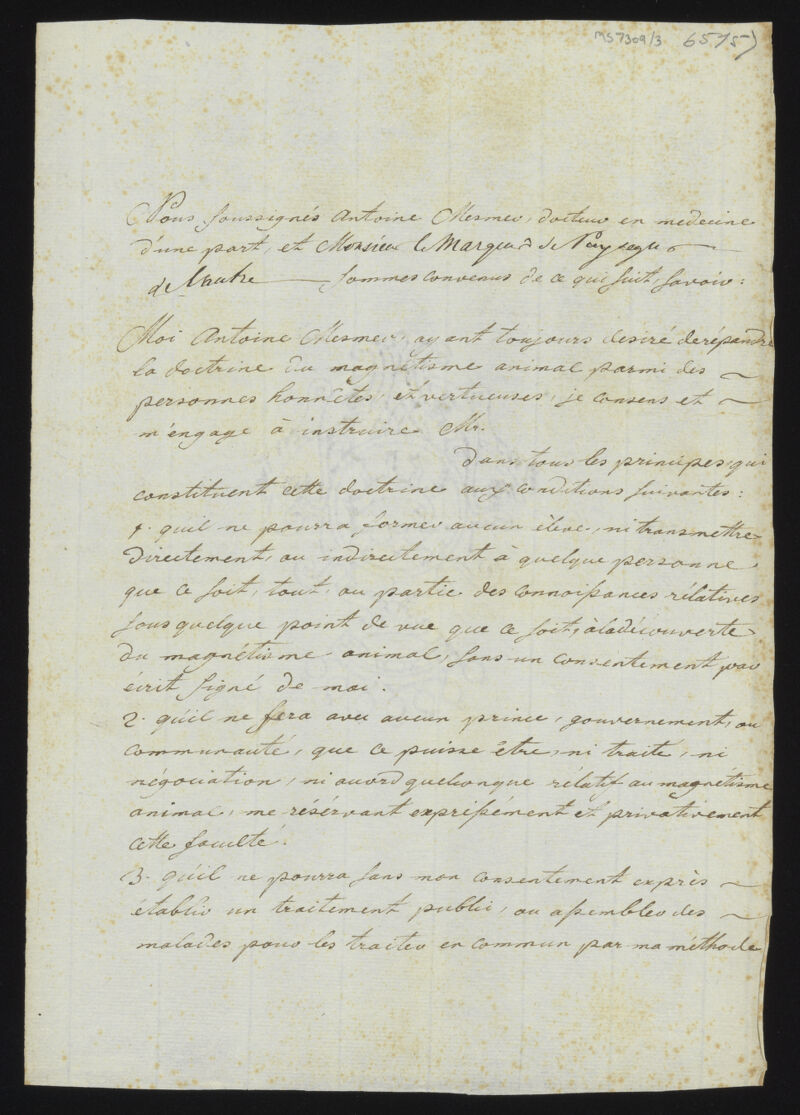 MS7309/3 65757
Nous soussignés Antoine Mesmer, docteur en medecine
d'une part, et Monsieur le Marquis de Puysegur
de l'autre sommes convenus de ce qui suit, savoir:
Moi Antoine Mesmer, ayant toujours desiré de répandre
la doctrine du magnétisme animal parmi des
personnes honnêtes, et vertueuses, je consens et
m'engage à instruire Mr.
dans tous les principes, qui
constituent cette doctrine aux conditions suivantes:
1. qu'il ne pourra former aucun élève, ni transmettre
directement, ou indirectement à quelque personne
que ce soit, tout, ou partie des connoissances rélatives
sous quelque point de vue que ce soit, à la découverte
du magnétisme animal, sans un consentement par
écrit signé de moi.
2. qu'il ne fera avec aucun prince, gouvernement, ou
communauté, que ce puisse être, ni traité, ni
négociation, ni accord quelconque rélatif au magnétisme
animal, me résérvant expressément et privativement
cette faculté.
3. qu'il ne pourra sans mon consentement exprès
établir un traitement public, ou assembler des
malades pour les traiter en commun par ma méthode